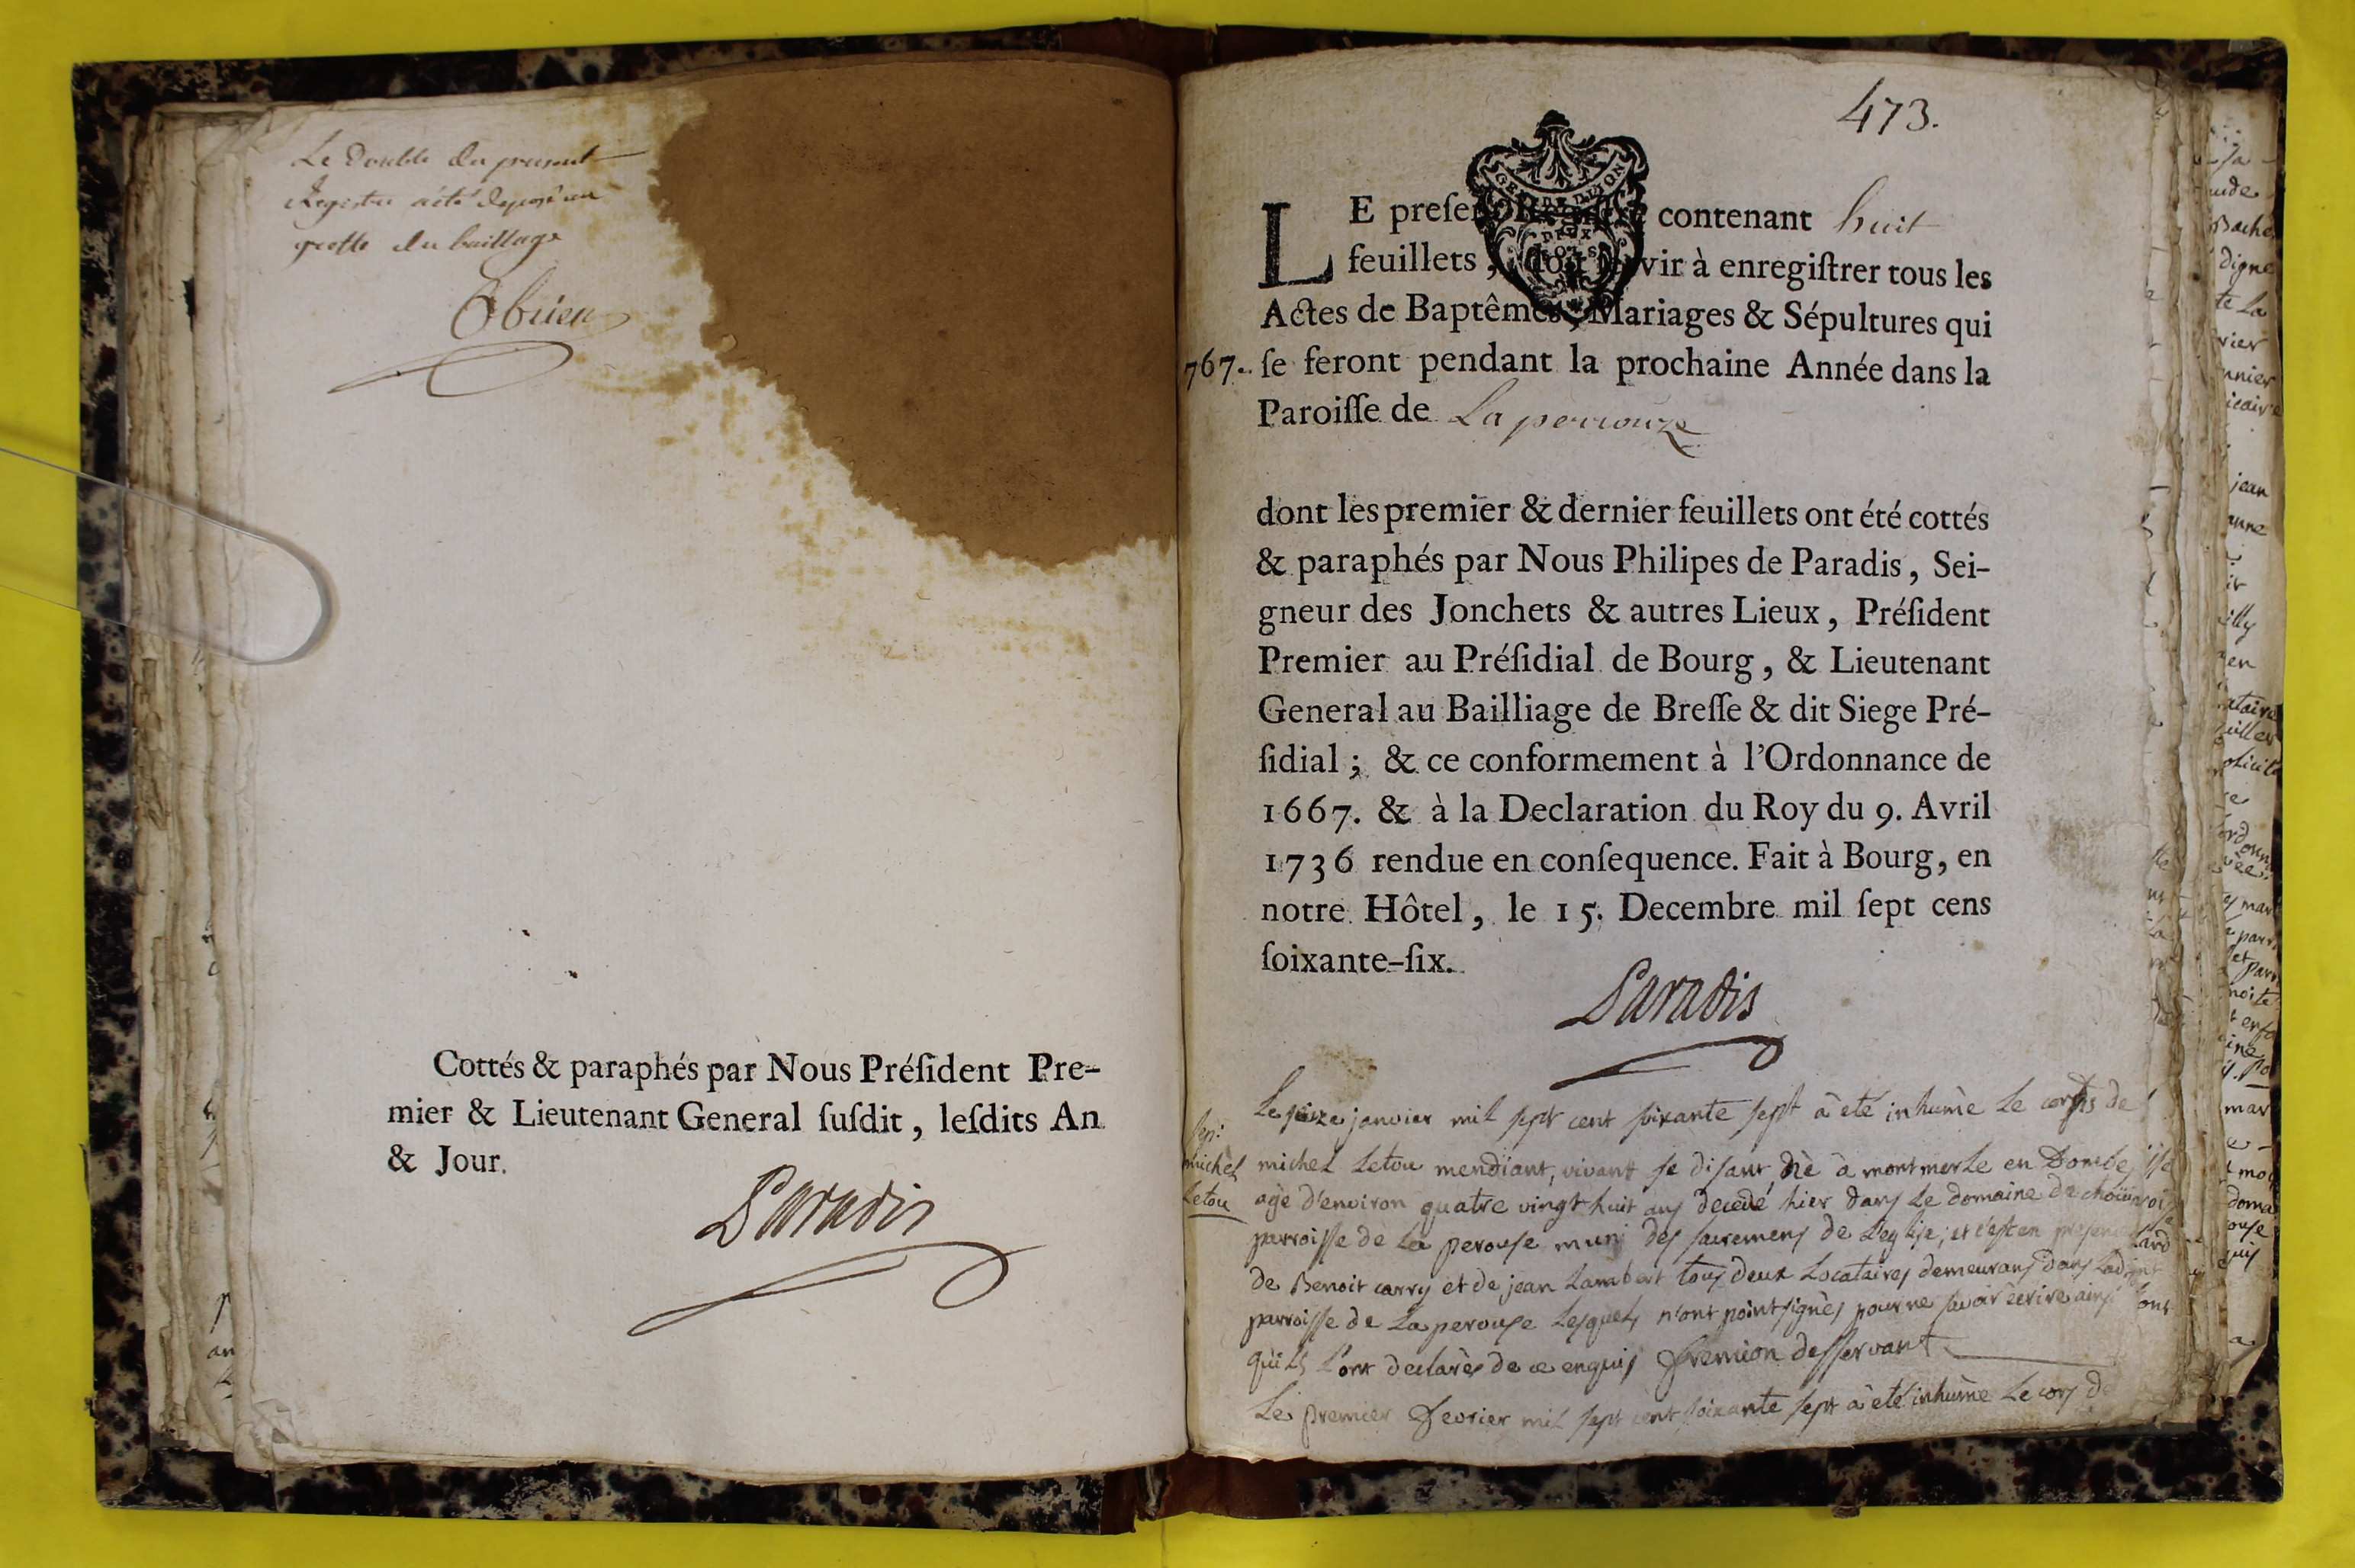 Le Double du present
Registre a été deposé au
greffe du baillage
Obrien
Cottés & paraphés par Nous Préſident Pre-
mier & Lieutenant General ſuſdit, leſdits An
& Jour.
Paradis
473.
LE preſent Regiſtre contenant huit
feuillets, doit ſervir à enregiſtrer tous les
Actes de Baptêmes, Mariages & Sépultures qui
767. ſe feront pendant la prochaine Année dans la
Paroiſſe de La perrouze
dont les premier & dernier feuillets ont été cottés
& paraphés par Nous Philipes de Paradis, Sei-
gneur des Jonchets & autres Lieux, Préſident
Premier au Préſidial de Bourg, & Lieutenant
General au Bailliage de Breſſe & dit Siege Pré-
ſidial; & ce conformement à l'Ordonnance de
1667. & à la Declaration du Roy du 9. Avril
1736 rendue en conſequence. Fait à Bourg, en
notre Hôtel, le 15. Decembre mil ſept cens
ſoixante-ſix.
Paradis
Sep:
michel
Letou
Le janvier mil sept cent soixante sept à eté inhumè Le corps de
michel Letou mendiant, vivant se disant nè à montmerle en Dombe
agè d'environ quatre vingt huit ans decedé hier dans Le domaine de
parroisse de La perouse muni des sacremens de L'eglise, et c'est en presence
de Benoit carry et de jean Lambert tous deux Locataires demeurans dans Ladite
parroisse de La perouse Lesquels n'ont point signès pour ne savoir écrire ainsi
qu'ils L'ont declarès de ce enquis fremion desservant
Le premier fevrier mil sept cent soixante sept à eté inhumè Le corps de